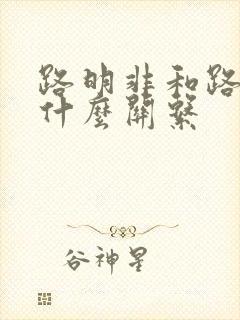 路明非和路
什麼關繫
谷神星